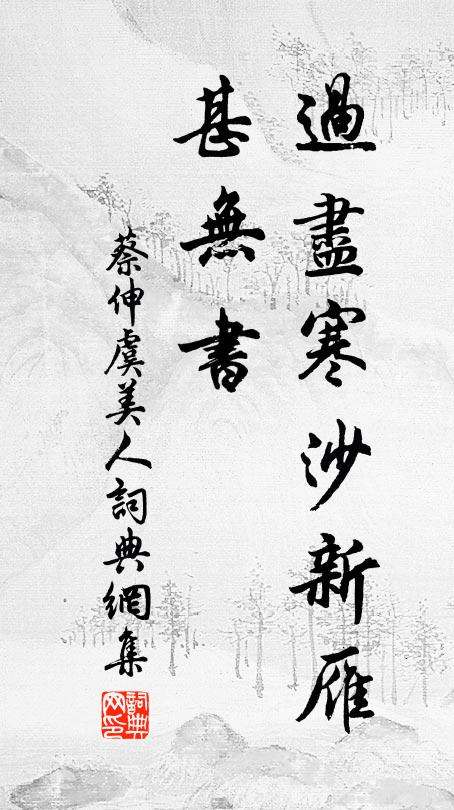 過盡寒沙新雁
甚無書
蔡伸虞美人詞典網集
詞典網印